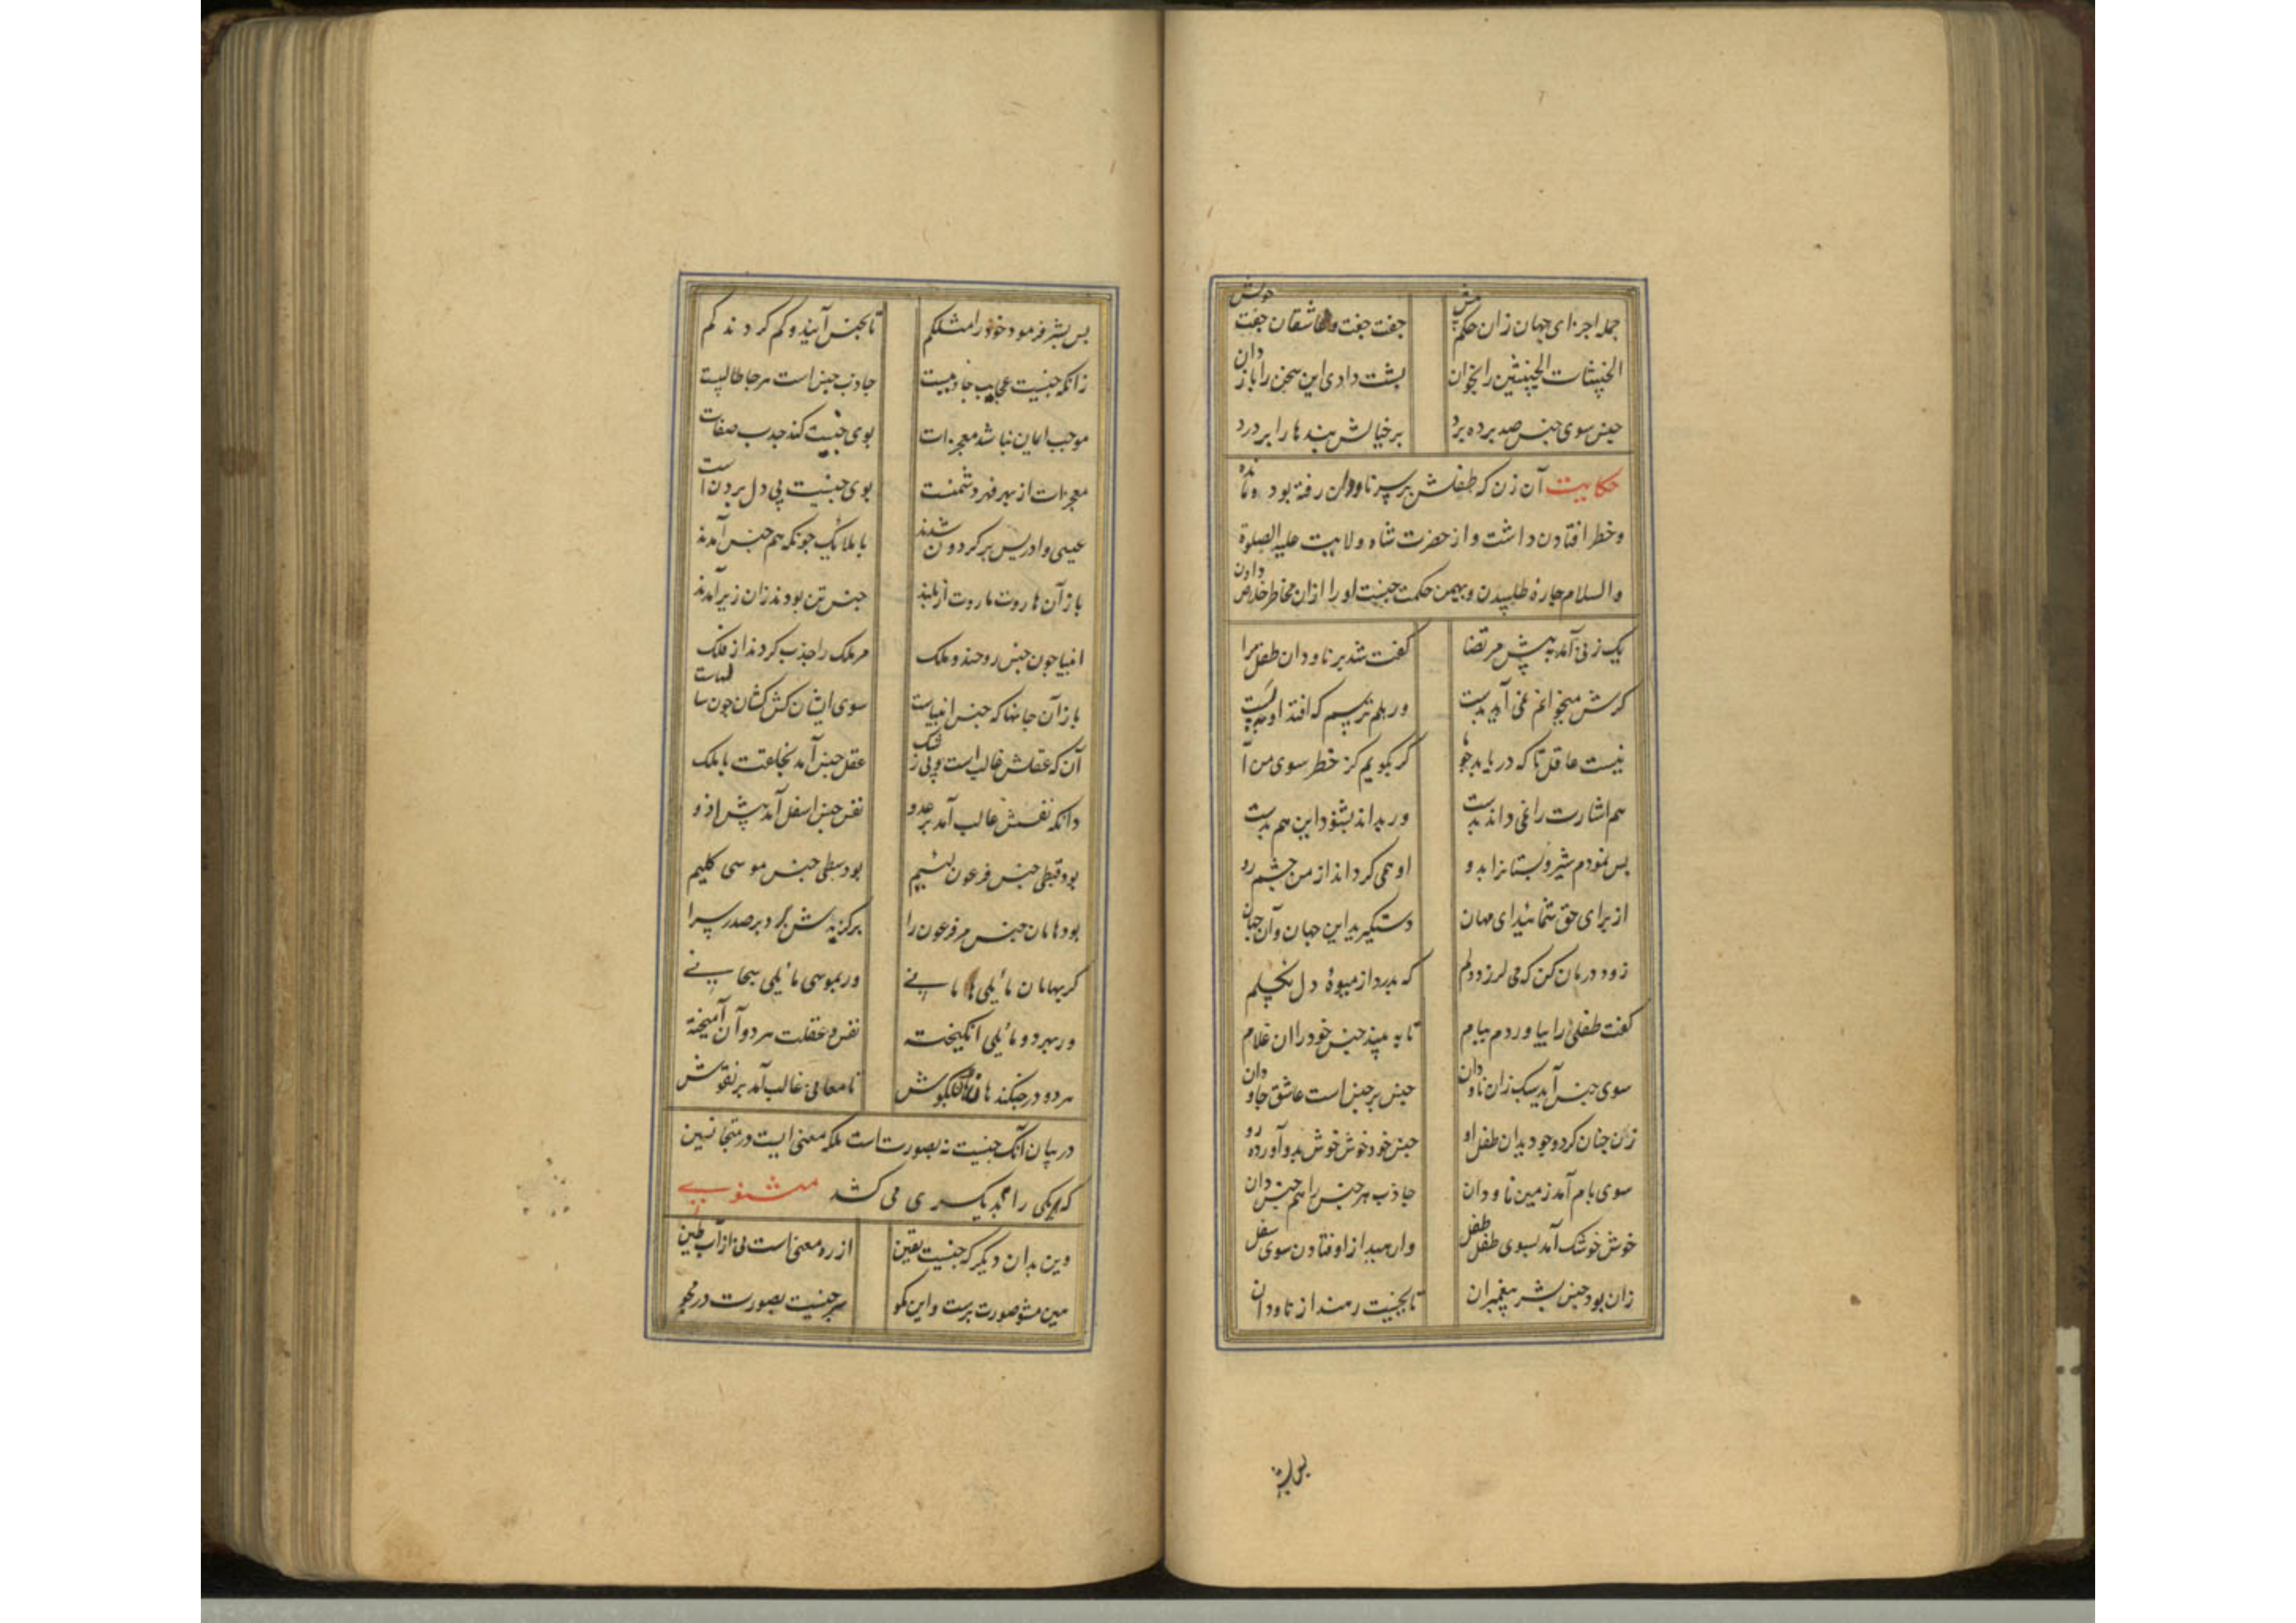 جمله اجزای جهان زان حکم پیش جفت جفت و عاشقان جفت خویش
الخبیثات الخبیثین را بخوان پشت دادی این سخن را باز دان
جنس سوی جنس صد برده برد بر خیالش بندها را بر درد
حکایت آن زن که طفلش بر سر ناودان رفته بود و مانده
و خطر افتادن داشت و از حضرت شاه ولایت علیه الصلوة
والسلام چارهٔ طلبیدن و بهمین حکمت جنسیت او را ازان مخاطر خلاص دادن
یک زنی آمد به پیش مرتضا گفت شد بر ناودان طفل مرا
گرش میخوانم نمی آید بدست ور هلم ترسم که افتد او به پست
نیست عاقل تا که دریابد چو ما گر بگویم کز خطر سوی من آ
هم اشارت را نمی داند بدست ور بداند نشنود این هم بدست
بس نمودم شیر و پستانرا بدو او همی گرداند از من چشم رو
از برای حق شمائید ای مهان دستگیر این جهان و آن جهان
زود درمان کن که می لرزد دلم که بدرد از میوهٔ دل بکسلم
گفت طفلی را بیاور دم ببام تا به بیند جنس خود را ان غلام
سوی جنس آید سبک زان ناودان جنس بر جنس است عاشق جاودان
زن چنان کرد و چو دید ان طفل او جنس خود خوش خوش بدو آورد رو
سوی بام آمد زمین ناودان جاذب هر جنس را هم جنس دان
خوش خوشک آمد بسوی طفل طفل وا رهید از اوفتادن سوی سفل
زان بود جنس بشر پیغمبران تا بجنسیت رهند از ناودان
بس بشر
بس بشر فرمود خود را مثلکم تا بجنس آیند و کم کردند کم
زانکه جنسیت عجایب جاذبیست جاذب جنس است هر جا طالبیست
موجب ایمان نباشد معجزات بوی جنسیت کند جذب صفات
معجزات از بهر قهر دشمنست بوی جنسیت پی دل بردن است
عیسی و ادریس بر گردون شدند با ملائک چونکه هم جنس آمدند
باز آن هاروت ماروت از بلند جنس تن بودند زان زیر آمدند
انبیا چون جنس روحند و ملک مر ملک را جذب کردند از فلک
باز آن جانها که جنس انبیاست سوی ایشان کش کشان چون سایهاست
آن که عقلش غالب است و بی ز شک عقل جنس آمد بخلقت با ملک
دانکه نفسش غالب آمد بر عدو نفس جنس اسفل آمد پیش ازو
بود قبطی جنس فرعون لئیم بود سبطی جنس موسی کلیم
بود هامان جنس مر فرعون را برگزیدش برد بر صدر سرا
گر بهامان مائلی هامانیی ور بموسی مائلی سبحانیی
ور بهر دو مائلی انگیخته نفس و عقلت هر دو آن آمیخته
هر دو در جنگند هان و هان بکوش تا معانی غالب آمد بر نقوش
در بیان آنک جنسیت نه بصورت است بلکه معنی ایست در متجانسین
که یکی را بدیگری می کشد مثنوی
وین بدان دیگر که جنسیت یقین از ره معنی است نی از آب و طین
هین مشو صورت پرست و این مگو سر جنسیت بصورت در مجو